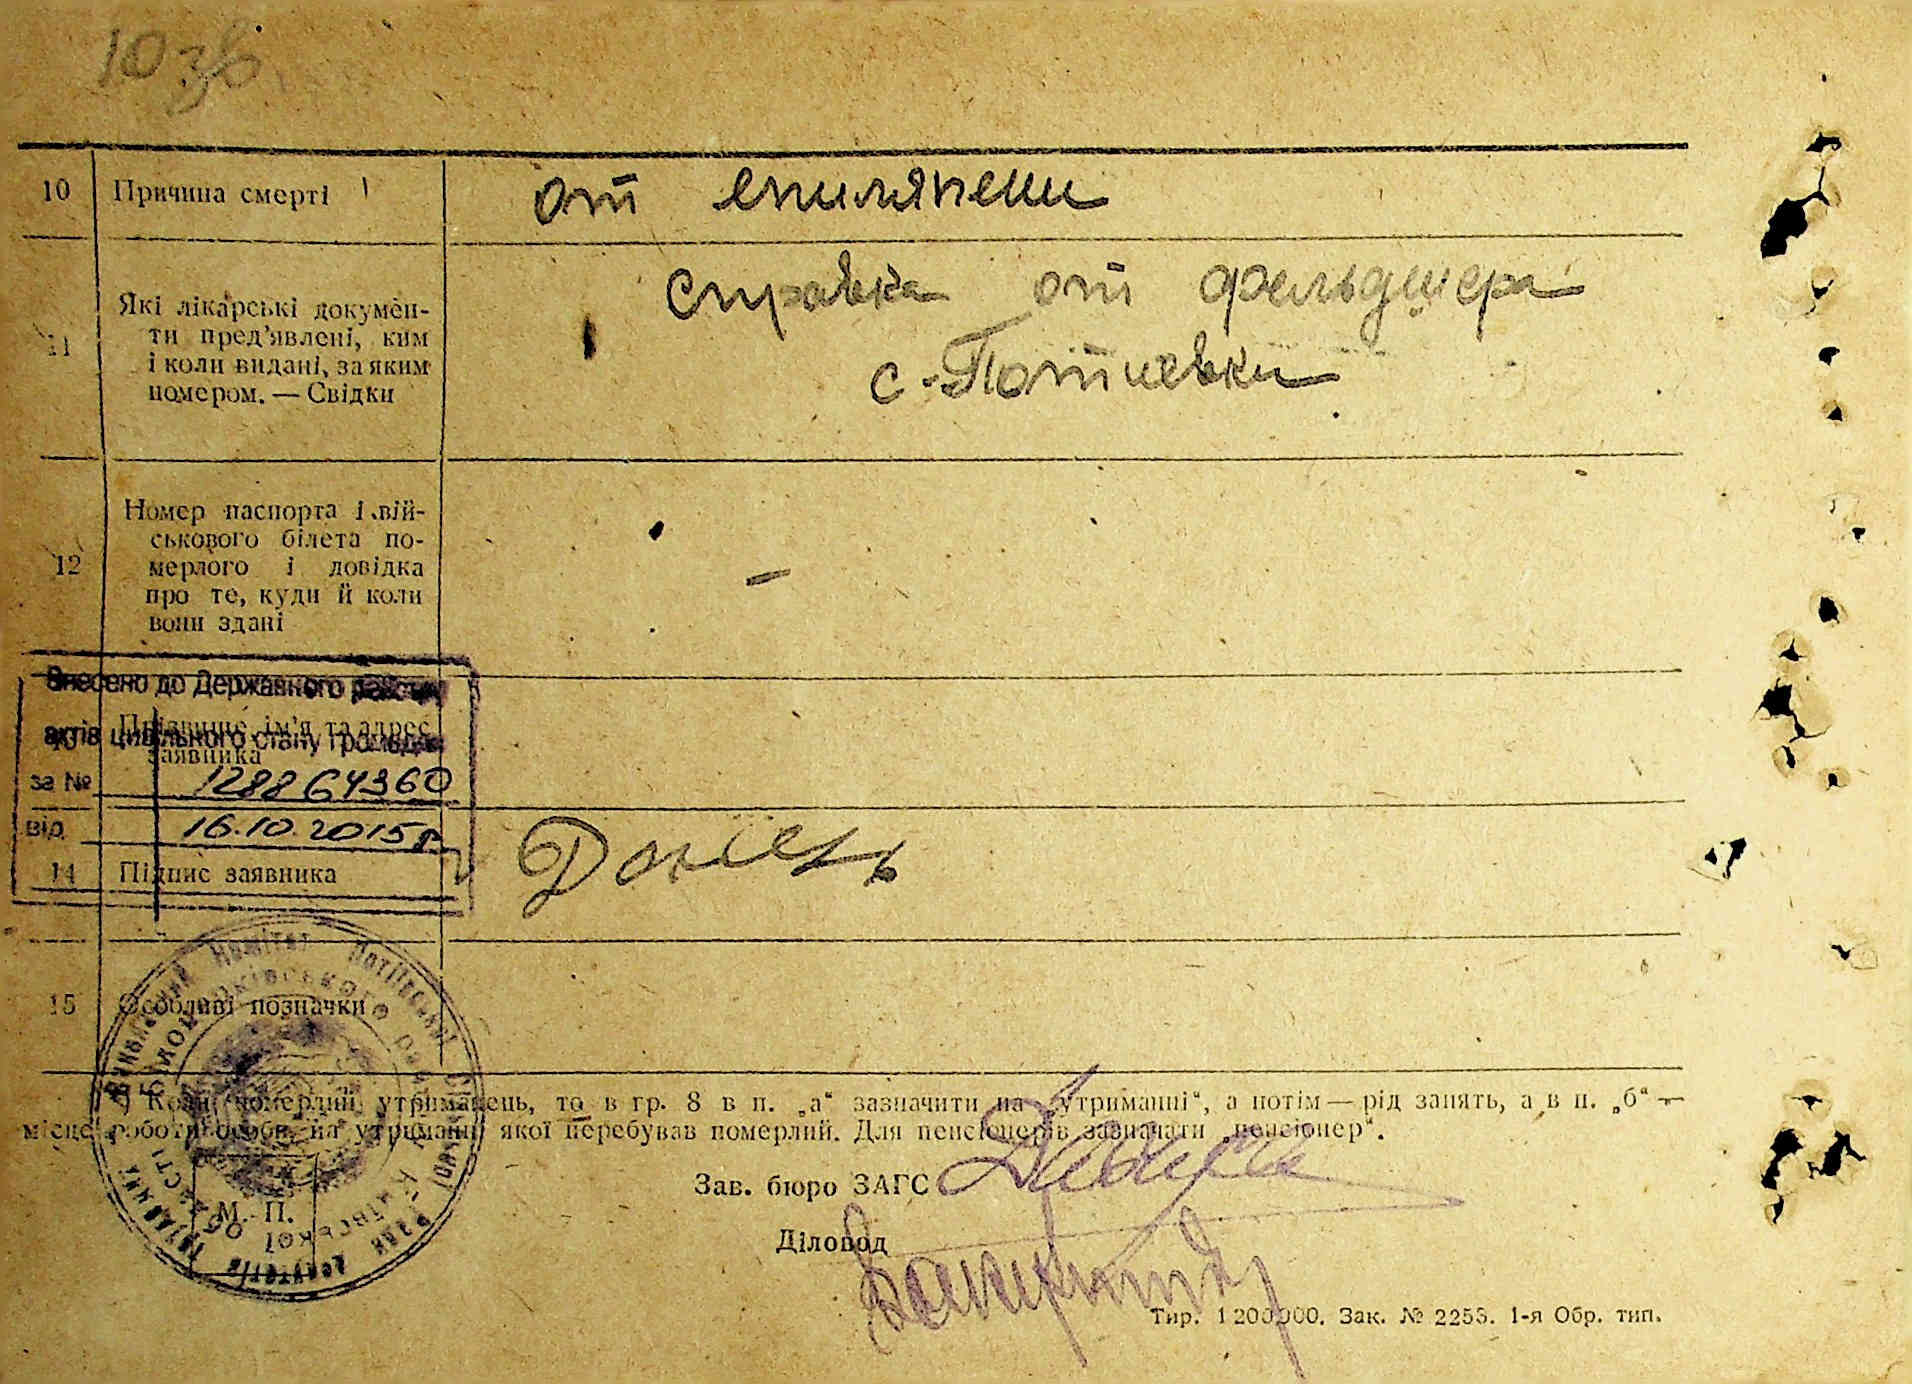 10 Причина смерті от епиляпсии
11 Які лікарські докумен-
ти пред'явлені, ким
і коли видані, за яким
номером. — Свідки
справка от фельдшера
с. Потиевки
12 Номер паспорта і вій-
ськового білета по-
мерлого і довідка
про те, куди й коли
вони здані
–
Внесено до Державного реєстру
актів цивільного стану громадян
за № 128864360
від 16.10.2015р
13 Прізвище, ім'я та адрес
заявника
14 Підпис заявника
15 Особливі позначки
Виконавчий Комітет Потіївської Сільської Ради депутатів трудящих
району Київської області
*) Коли померлий утриманець, то в гр. 8 в п. „а“ зазначити на „утриманні“, а потім — рід занять, а в п. „б“ —
місце роботи особи, на утриманні якої перебував померлий. Для пенсіонерів зазначати „пенсіонер“.
Зав. бюро ЗАГС
Діловод
М. П.
Тир. 1 200 000. Зак. № 2256. 1-я Обр. тип.